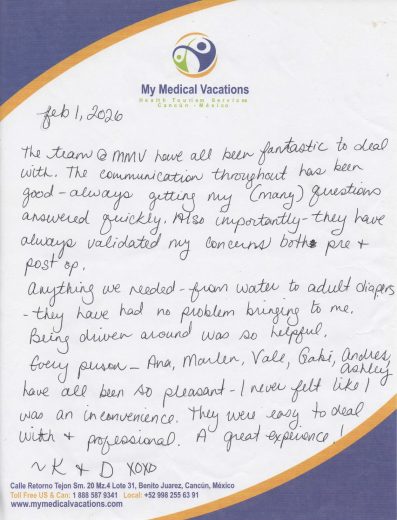 My Medical Vacations
Health Tourism Services
Cancún - México
feb 1, 2026
The team @ MMV have all been fantastic to deal
with. The communication throughout has been
good - always getting my (many) questions
answered quickly. Also importantly - they have
always validated my concerns both pre +
post op.
Anything we needed - from water to adult diapers
- they have had no problem bringing to me.
Being driven around was so helpful.
Every person - Ana, Marlen, Vale, Gabi, Andres,
Ashley
have all been so pleasant - I never felt like I
was an inconvenience. They were easy to deal
with + professional. A great experience!
~ K & D xoxo
Calle Retorno Tejon Sm. 20 Mz.4 Lote 31, Benito Juarez, Cancún, México
Toll Free US & Can: 1 888 587 9341 Local: +52 998 255 63 91
www.mymedicalvacations.com